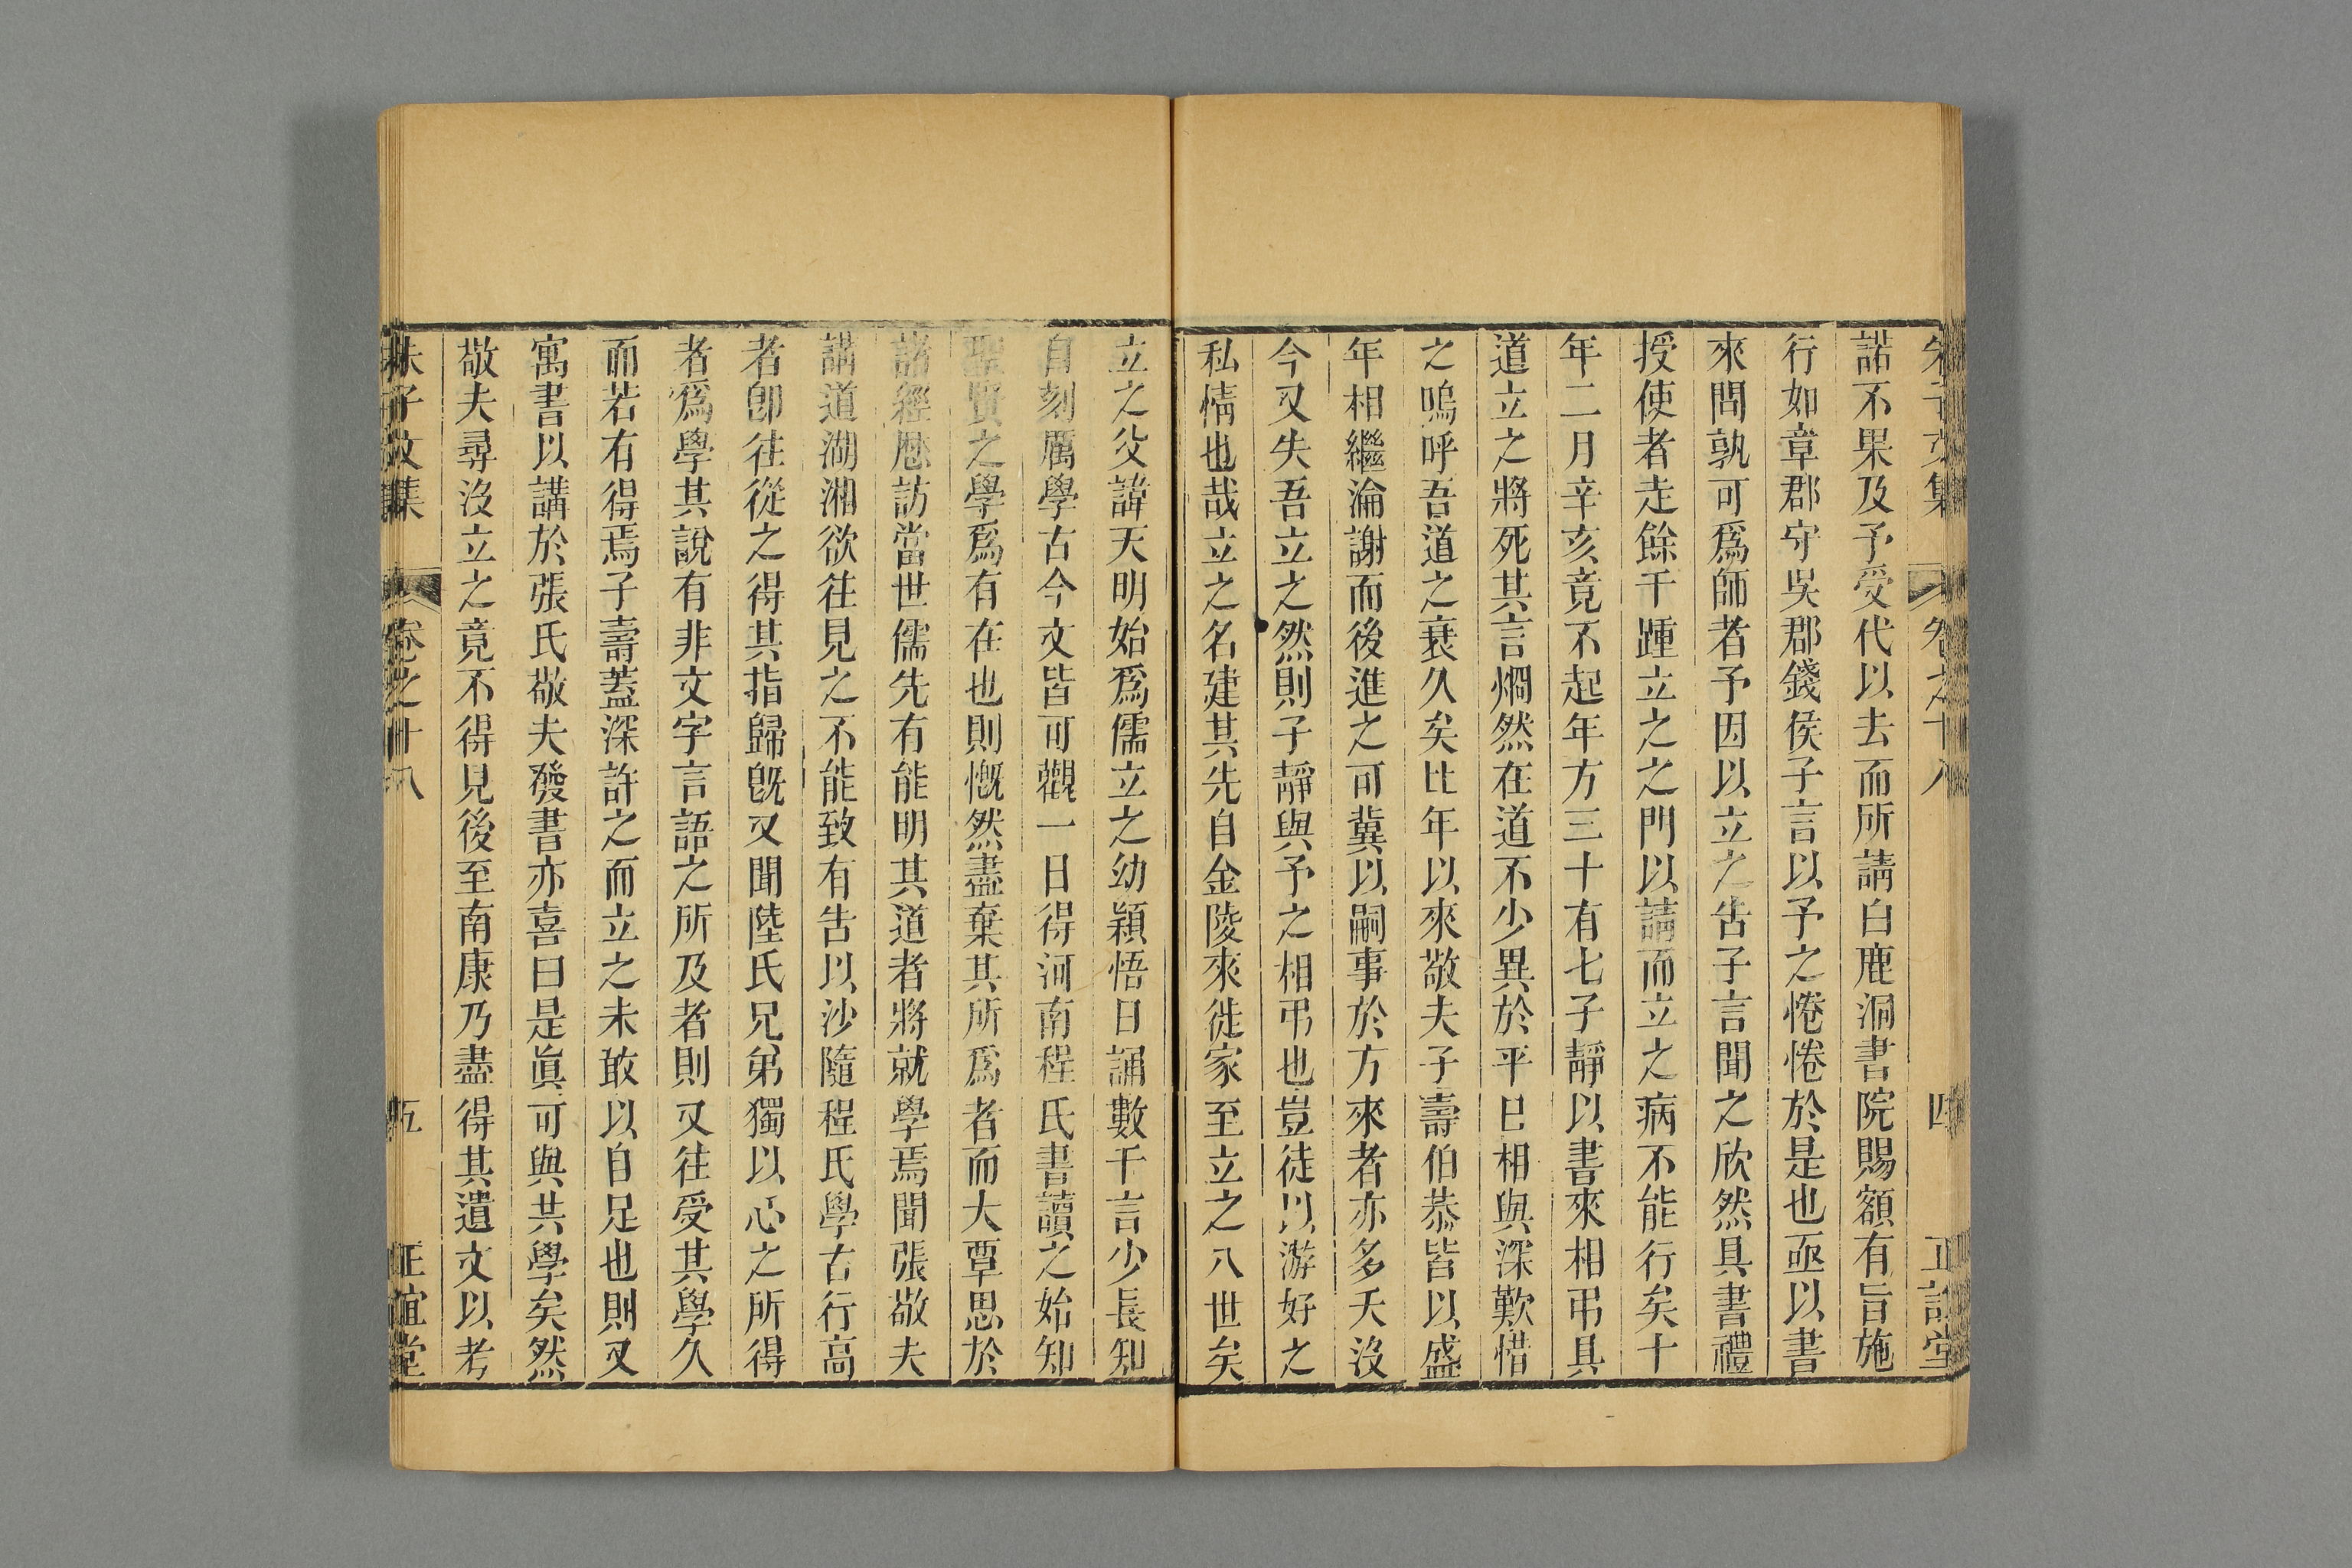 朱子文集 卷之十八 四 正誼堂
諾不果及予受代以去而所請白鹿洞書院賜額有旨施
行如章郡守吳郡錢侯子言以予之惓惓於是也亟以書
來問孰可爲師者予因以立之告子言聞之欣然具書禮
授使者走餘干踵立之之門以請而立之病不能行矣十
年二月辛亥竟不起年方三十有七子靜以書來相弔具
道立之將死其言烱然在道不少異於平日相與深歎惜
之嗚呼吾道之衰久矣比年以來敬夫子壽伯恭皆以盛
年相繼淪謝而後進之可冀以嗣事於方來者亦多夭沒
今又失吾立之然則子靜與予之相弔也豈徒以游好之
私情也哉立之名建其先自金陵來徙家至立之八世矣
立之父諱天明始爲儒立之幼穎悟日誦數千言少長知
自刻厲學古今文皆可觀一日得河南程氏書讀之始知
聖賢之學爲有在也則慨然盡棄其所爲者而大覃思於
諸經歷訪當世儒先有能明其道者將就學焉聞張敬夫
講道湖湘欲往見之不能致有告以沙隨程氏學古行高
者卽往從之得其指歸旣又聞陸氏兄弟獨以心之所得
者爲學其說有非文字言語之所及者則又往受其學久
而若有得焉子壽蓋深許之而立之未敢以自足也則又
寓書以講於張氏敬夫發書亦喜曰是眞可與共學矣然
敬夫尋沒立之竟不得見後至南康乃盡得其遺文以考
朱子文集 卷之十八 五 正誼堂